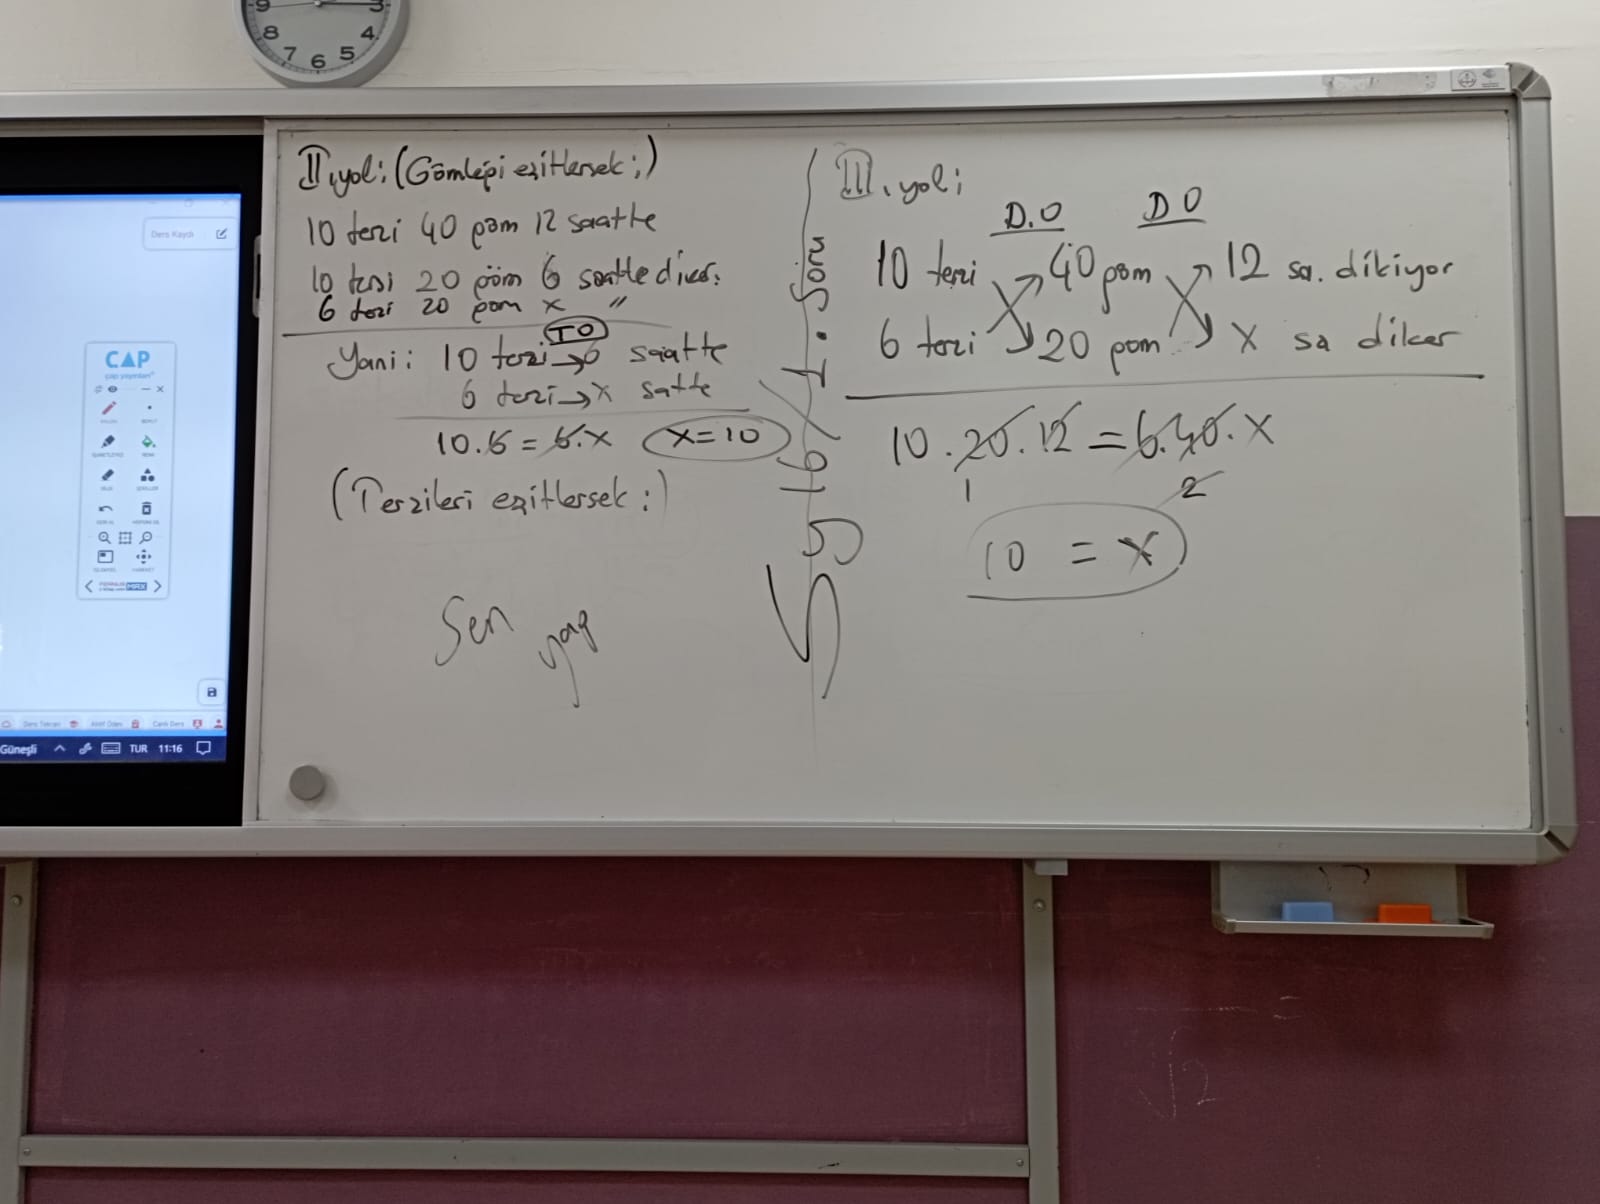 9 3
8 4
7 6 5
II. yol: (Gömleği eşitlersek;)
10 terzi 40 göm 12 saatte
10 terzi 20 göm 6 saatte diker.
6 terzi 20 göm x "
TO
Yani: 10 terzi → 6 saatte
6 terzi → x satte
10.6 = 6.x x = 10
(Terzileri eşitlersek:)
Sen yap
S 5 - 161 1. Soru
III. yol;
D.O D O
10 terzi 40 göm 12 sa. dikiyor
6 terzi 20 göm x sa diker
10.20.12 = 6.40.x
1 2
10 = x
Ders Kaydı
CAP
çap yayınları
MAX
Ders Tekrarı Aktif Ödev Canlı Ders
Güneşli TUR 11:16
√2